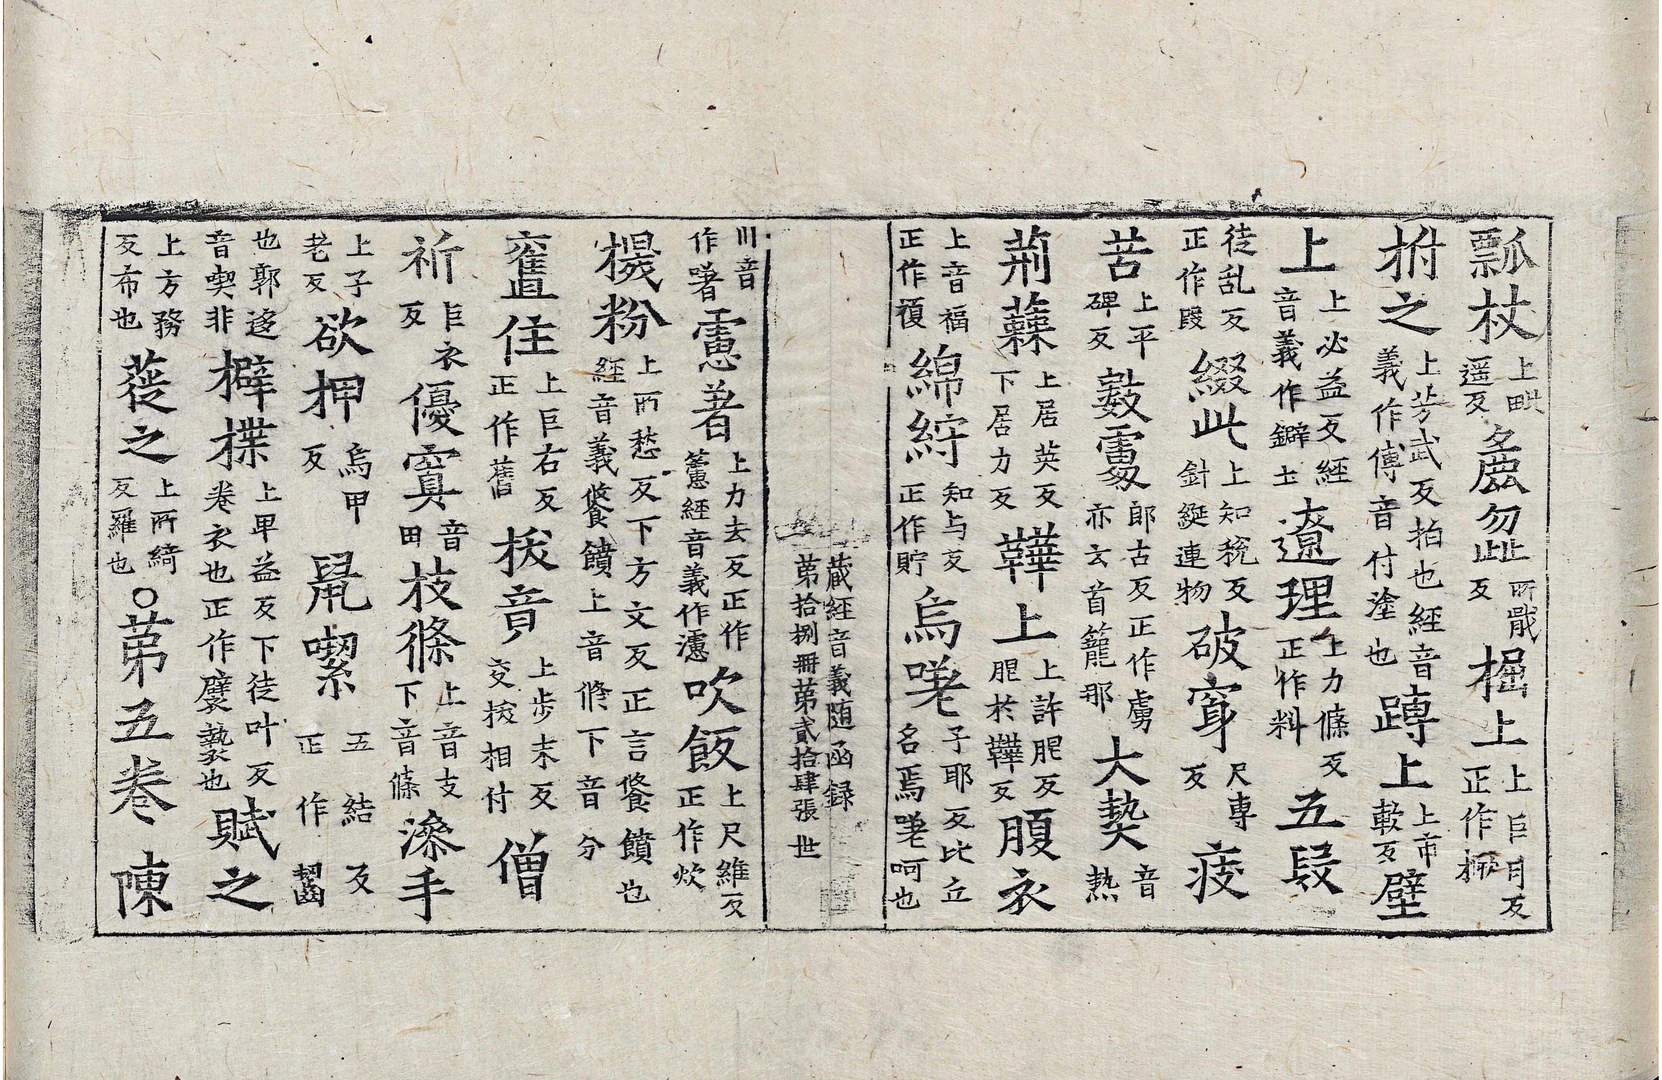 瓢杖上毗遥反麁勿些所戢反掘上上巨月反正作橛
拊之上芳武反拍也經音義作傅音付塗也蹲上上市軟反壁
上上必益反經音義作鐴土遼理上力條反正作料五段
徒乱反正作段綴此上知稅反針綖連物破穿尺專反疲
苦上平碑反鼓䨥郎古反正作虜亦云首籠那大𤍠音热
荊䕯上居英反下居力反鞾上上許肥反腥於鞾反腹衣
上音福正作複綿紵知与反正作貯烏嗟子耶反比丘名焉嗟呵也
藏經音義随函録
第拾捌冊第貳拾肆張 世
川音作署慮著上力去反正作藘經音義作濾吹飯上尺維反正作炊
𣝛粉上所愁反下方文反正言餐饙也經音義餐饙上音修下音分
舊住上巨右反正作舊拔音上步末反交拔相付僧
祈巨衣反優寘音田枝條上音支下音條澡手
上子老反欲押烏甲反鼠㗉五結反正作齧
也郭迻音喫非擗揲上卑益反下徒叶反卷衣也正作襞褺也賦之
上方務反布也蓰之上所綺反羅也○第五卷陳